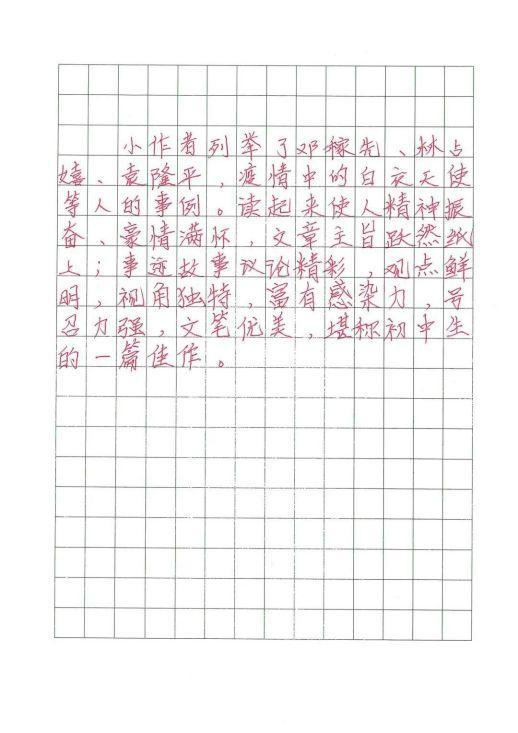 小作者列举了邓稼先、林占
嬉、袁隆平,疫情中的白衣天使
等人的事例。读起来使人精神振
奋、豪情满怀,文章主旨跃然纸
上;事迹故事议论精彩,观点鲜
明,视角独特,富有感染力,号
召力强,文笔优美,堪称初中生
的一篇佳作。